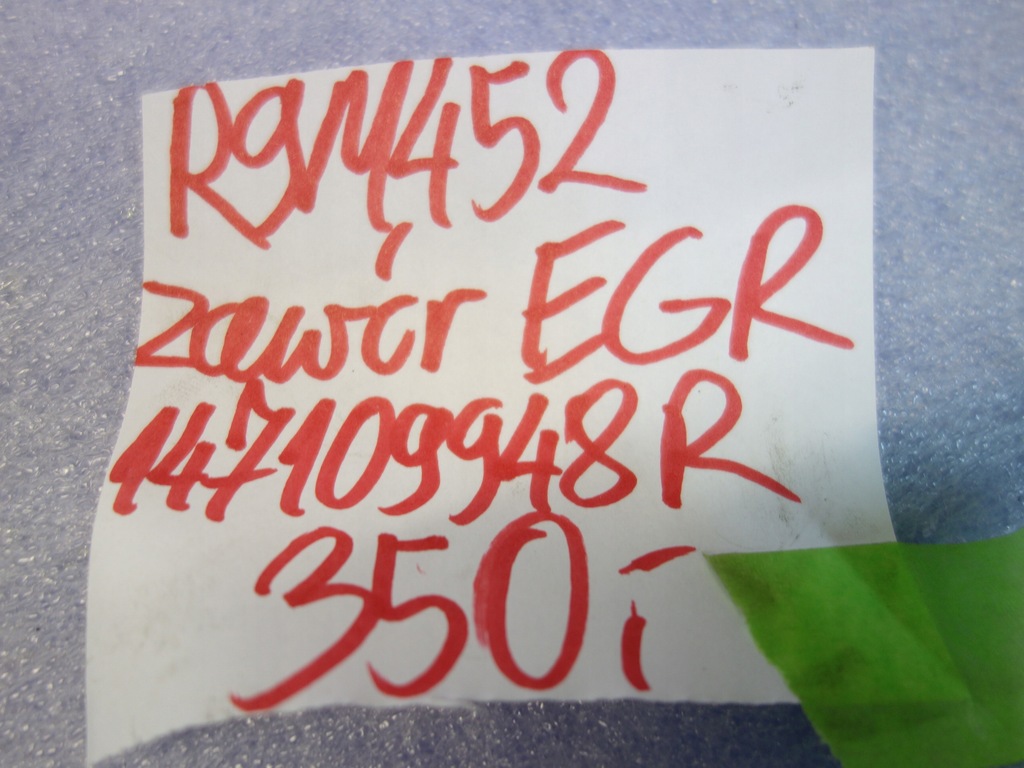 R9M452
zawór EGR
147109948R
350